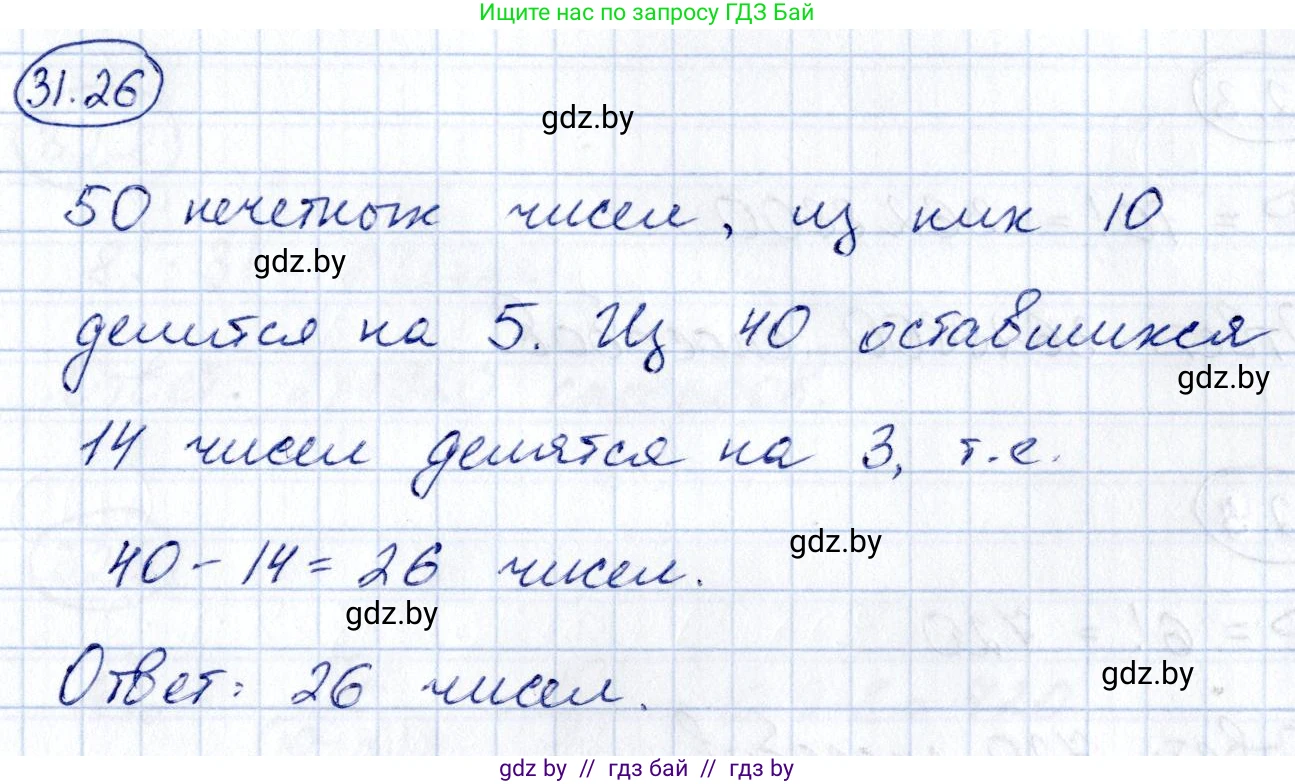 Ищите нас по запросу ГДЗ Бай
31.26
gdz.by
50 нечетных чисел, из них 10
gdz.by
делится на 5. Из 40 оставшихся
gdz.by
14 чисел делятся на 3, т.е.
gdz.by
40 - 14 = 26 чисел.
gdz.by
Ответ: 26 чисел.
gdz.by
gdz by // гдз бай // гдз by